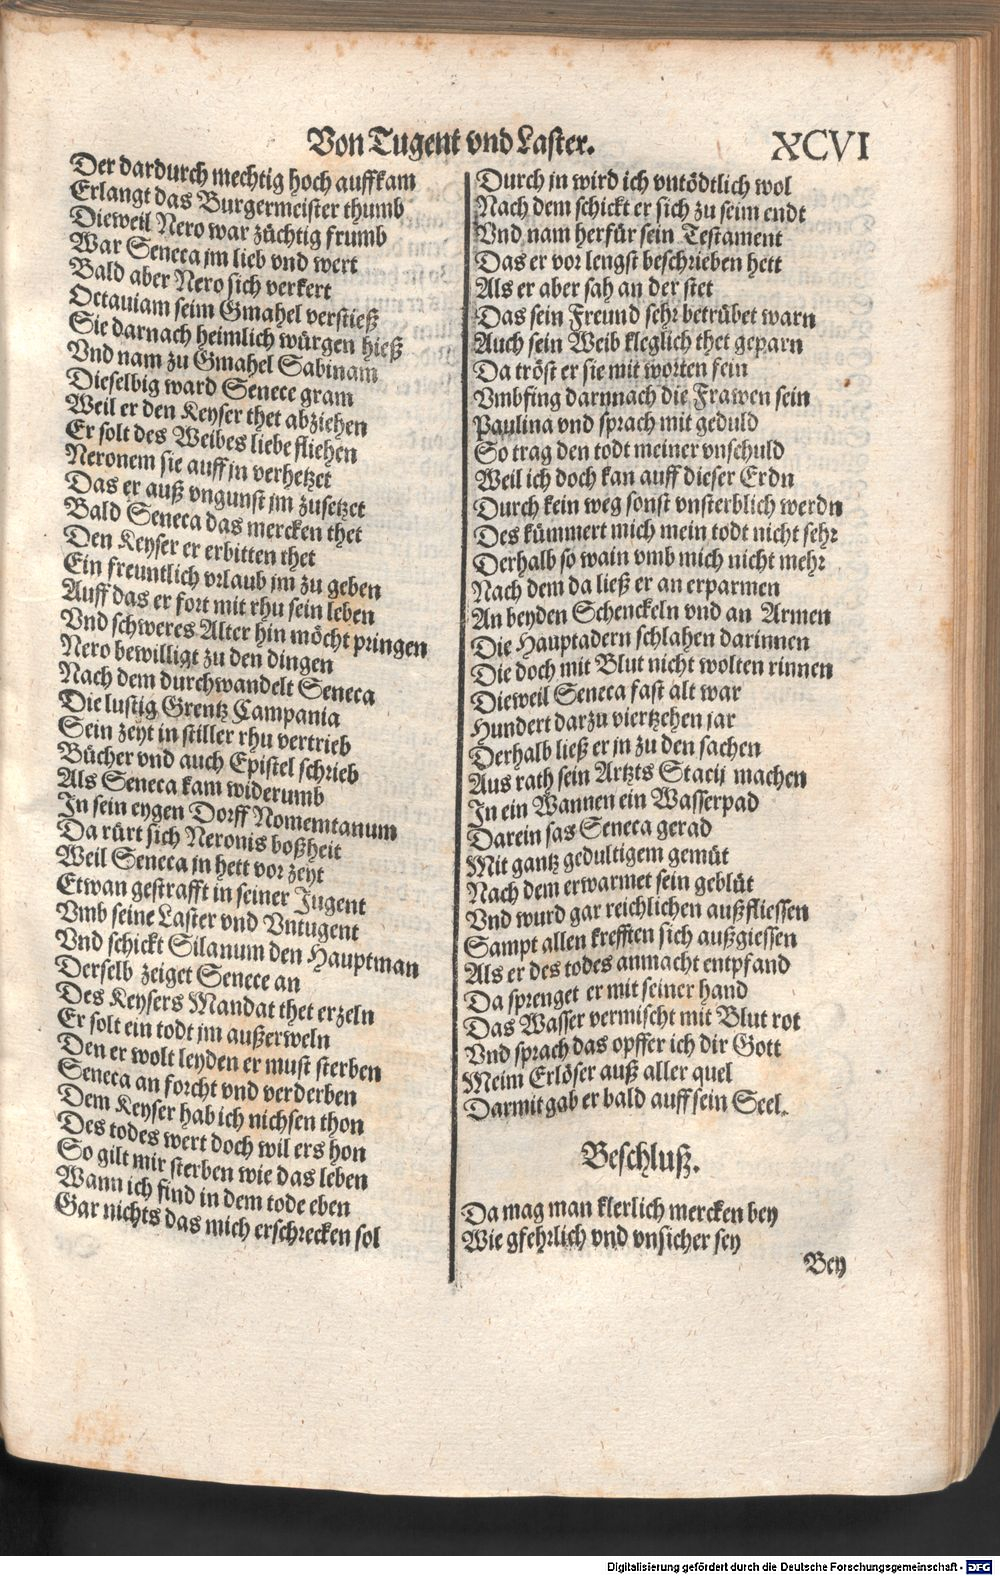 Von Tugent vnd Laster.
XCVI
Der dardurch mechtig hoch auffkam
Erlangt das Burgermeister thumb
Dieweil Nero war züchtig frumb
War Seneca jm lieb vnd wert
Bald aber Nero sich verkert
Octauiam seim Gmahel verstieß
Sie darnach heimlich würgen hieß
Vnd nam zu Gmahel Sabinam
Dieselbig ward Senece gram
Weil er den Keyser thet abziehen
Er solt des Weibes liebe fliehen
Neronem sie auff jn verhetzet
Das er auß vngunst jm zusetzet
Bald Seneca das mercken thet
Den Keyser er erbitten thet
Ein freuntlich vrlaub jm zu geben
Auff das er fort mit rhu sein leben
Vnd schweres Alter hin möcht pringen
Nero bewilligt zu den dingen
Nach dem durchwandelt Seneca
Die lustig Grentz Campania
Sein zeyt in stiller rhu vertrieb
Bücher vnd auch Epistel schrieb
Als Seneca kam widerumb
In sein eygen Dorff Nomemtanum
Da rürt sich Neronis boßheit
Weil Seneca jn hett vor zeyt
Etwan gestrafft in seiner Jugent
Vmb seine Laster vnd Vntugent
Vnd schickt Silanum den Hauptman
Derselb zeiget Senece an
Des Keysers Mandat thet erzeln
Er solt ein todt jm außerweln
Den er wolt leyden er must sterben
Seneca an forcht vnd verderben
Dem Keyser hab ich nichsen thon
Des todes wert doch wil ers hon
So gilt mir sterben wie das leben
Wann ich find in dem tode eben
Gar nichts das mich erschrecken sol
Durch jn wird ich vntödtlich wol
Nach dem schickt er sich zu seim endt
Vnd nam herfür sein Testament
Das er vor lengst beschrieben hett
Als er aber sah an der stet
Das sein Freund sehr betrübet warn
Auch sein Weib kleglich thet geparn
Da tröst er sie mit worten fein
Vmbfing darnnach die Frawen sein
Paulina vnd sprach mit geduld
So trag den todt meiner vnschuld
Weil ich doch kan auff dieser Erdn
Durch kein weg sonst vnsterblich werdn
Des kümmert mich mein todt nicht sehr
Derhalb so wain vmb mich nicht mehr
Nach dem da ließ er an erparmen
An beyden Schenckeln vnd an Armen
Die Hauptadern schlahen darinnen
Die doch mit Blut nicht wolten rinnen
Dieweil Seneca fast alt war
Hundert darzu viertzehen jar
Derhalb ließ er jn zu den sachen
Aus rath sein Artzts Stacij machen
In ein Wannen ein Wasserpad
Darein sas Seneca gerad
Mit gantz gedultigem gemüt
Nach dem erwarmet sein geblüt
Vnd wurd gar reichlichen außfliessen
Sampt allen krefften sich außgiessen
Als er des todes anmacht entpfand
Da sprenget er mit seiner hand
Das Wasser vermischt mit Blut rot
Vnd sprach das opffer ich dir Gott
Meim Erlöser auß aller quel
Darmit gab er bald auff sein Seel.
Beschluß.
Da mag man klerlich mercken bey
Wie gfehrlich vnd vnsicher sey
Bey
Digitalisierung gefördert durch die Deutsche Forschungsgemeinschaft - DFG